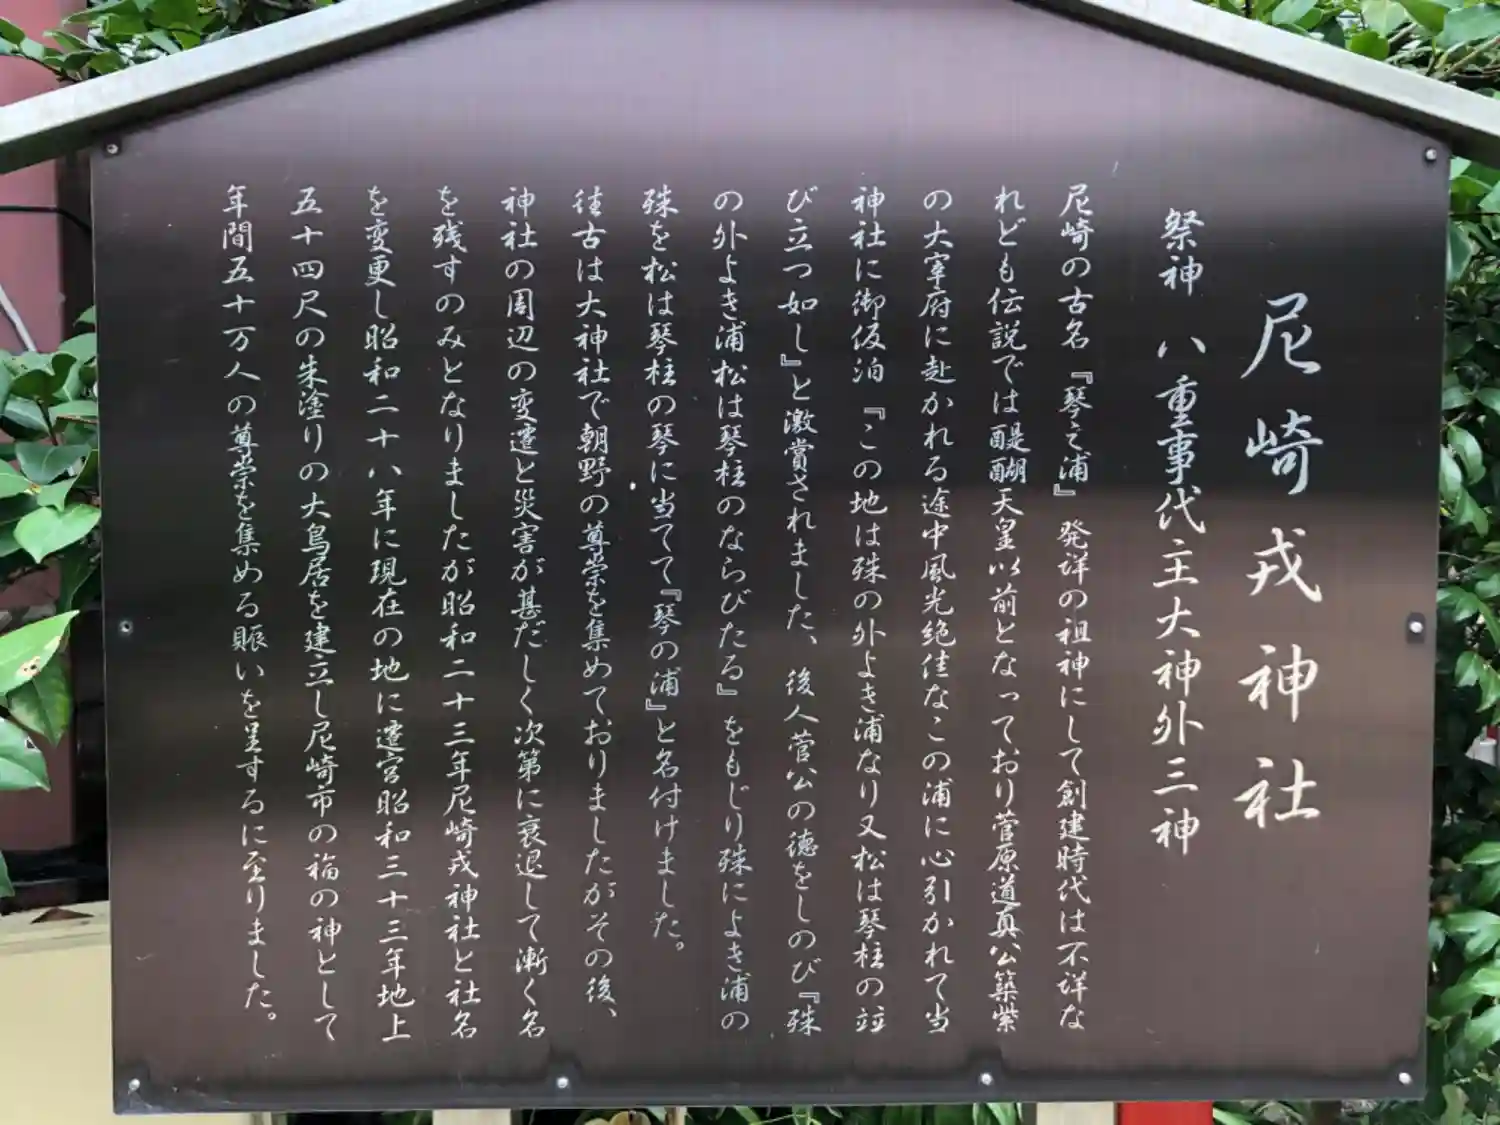 尼崎戎神社
祭神　八重事代主大神外三神
尼崎の古名『琴之浦』発詳の祖神にして創建時代は不詳な
れども伝説では醍醐天皇以前となっており菅原道真公築紫
の大宰府に赴かれる途中風光絶佳なこの浦に心引かれて当
神社に御仮泊『この地は殊の外よき浦なり又松は琴柱の竝
び立つ如し』と激賞されました、後人菅公の徳をしのび『殊
の外よき浦松は琴柱のならびたる』をもじり殊によき浦の
殊を松は琴柱の琴に当てて『琴の浦』と名付けました。
往古は大神社で朝野の尊崇を集めておりましたがその後、
神社の周辺の変遷と災害が甚だしく次第に衰退して漸く名
を残すのみとなりましたが昭和二十三年尼崎戎神社と社名
を変更し昭和二十八年に現在の地に遷宮昭和三十三年地上
五十四尺の朱塗りの大鳥居を建立し尼崎市の福の神として
年間五十万人の尊崇を集める賑いを呈するに至りました。